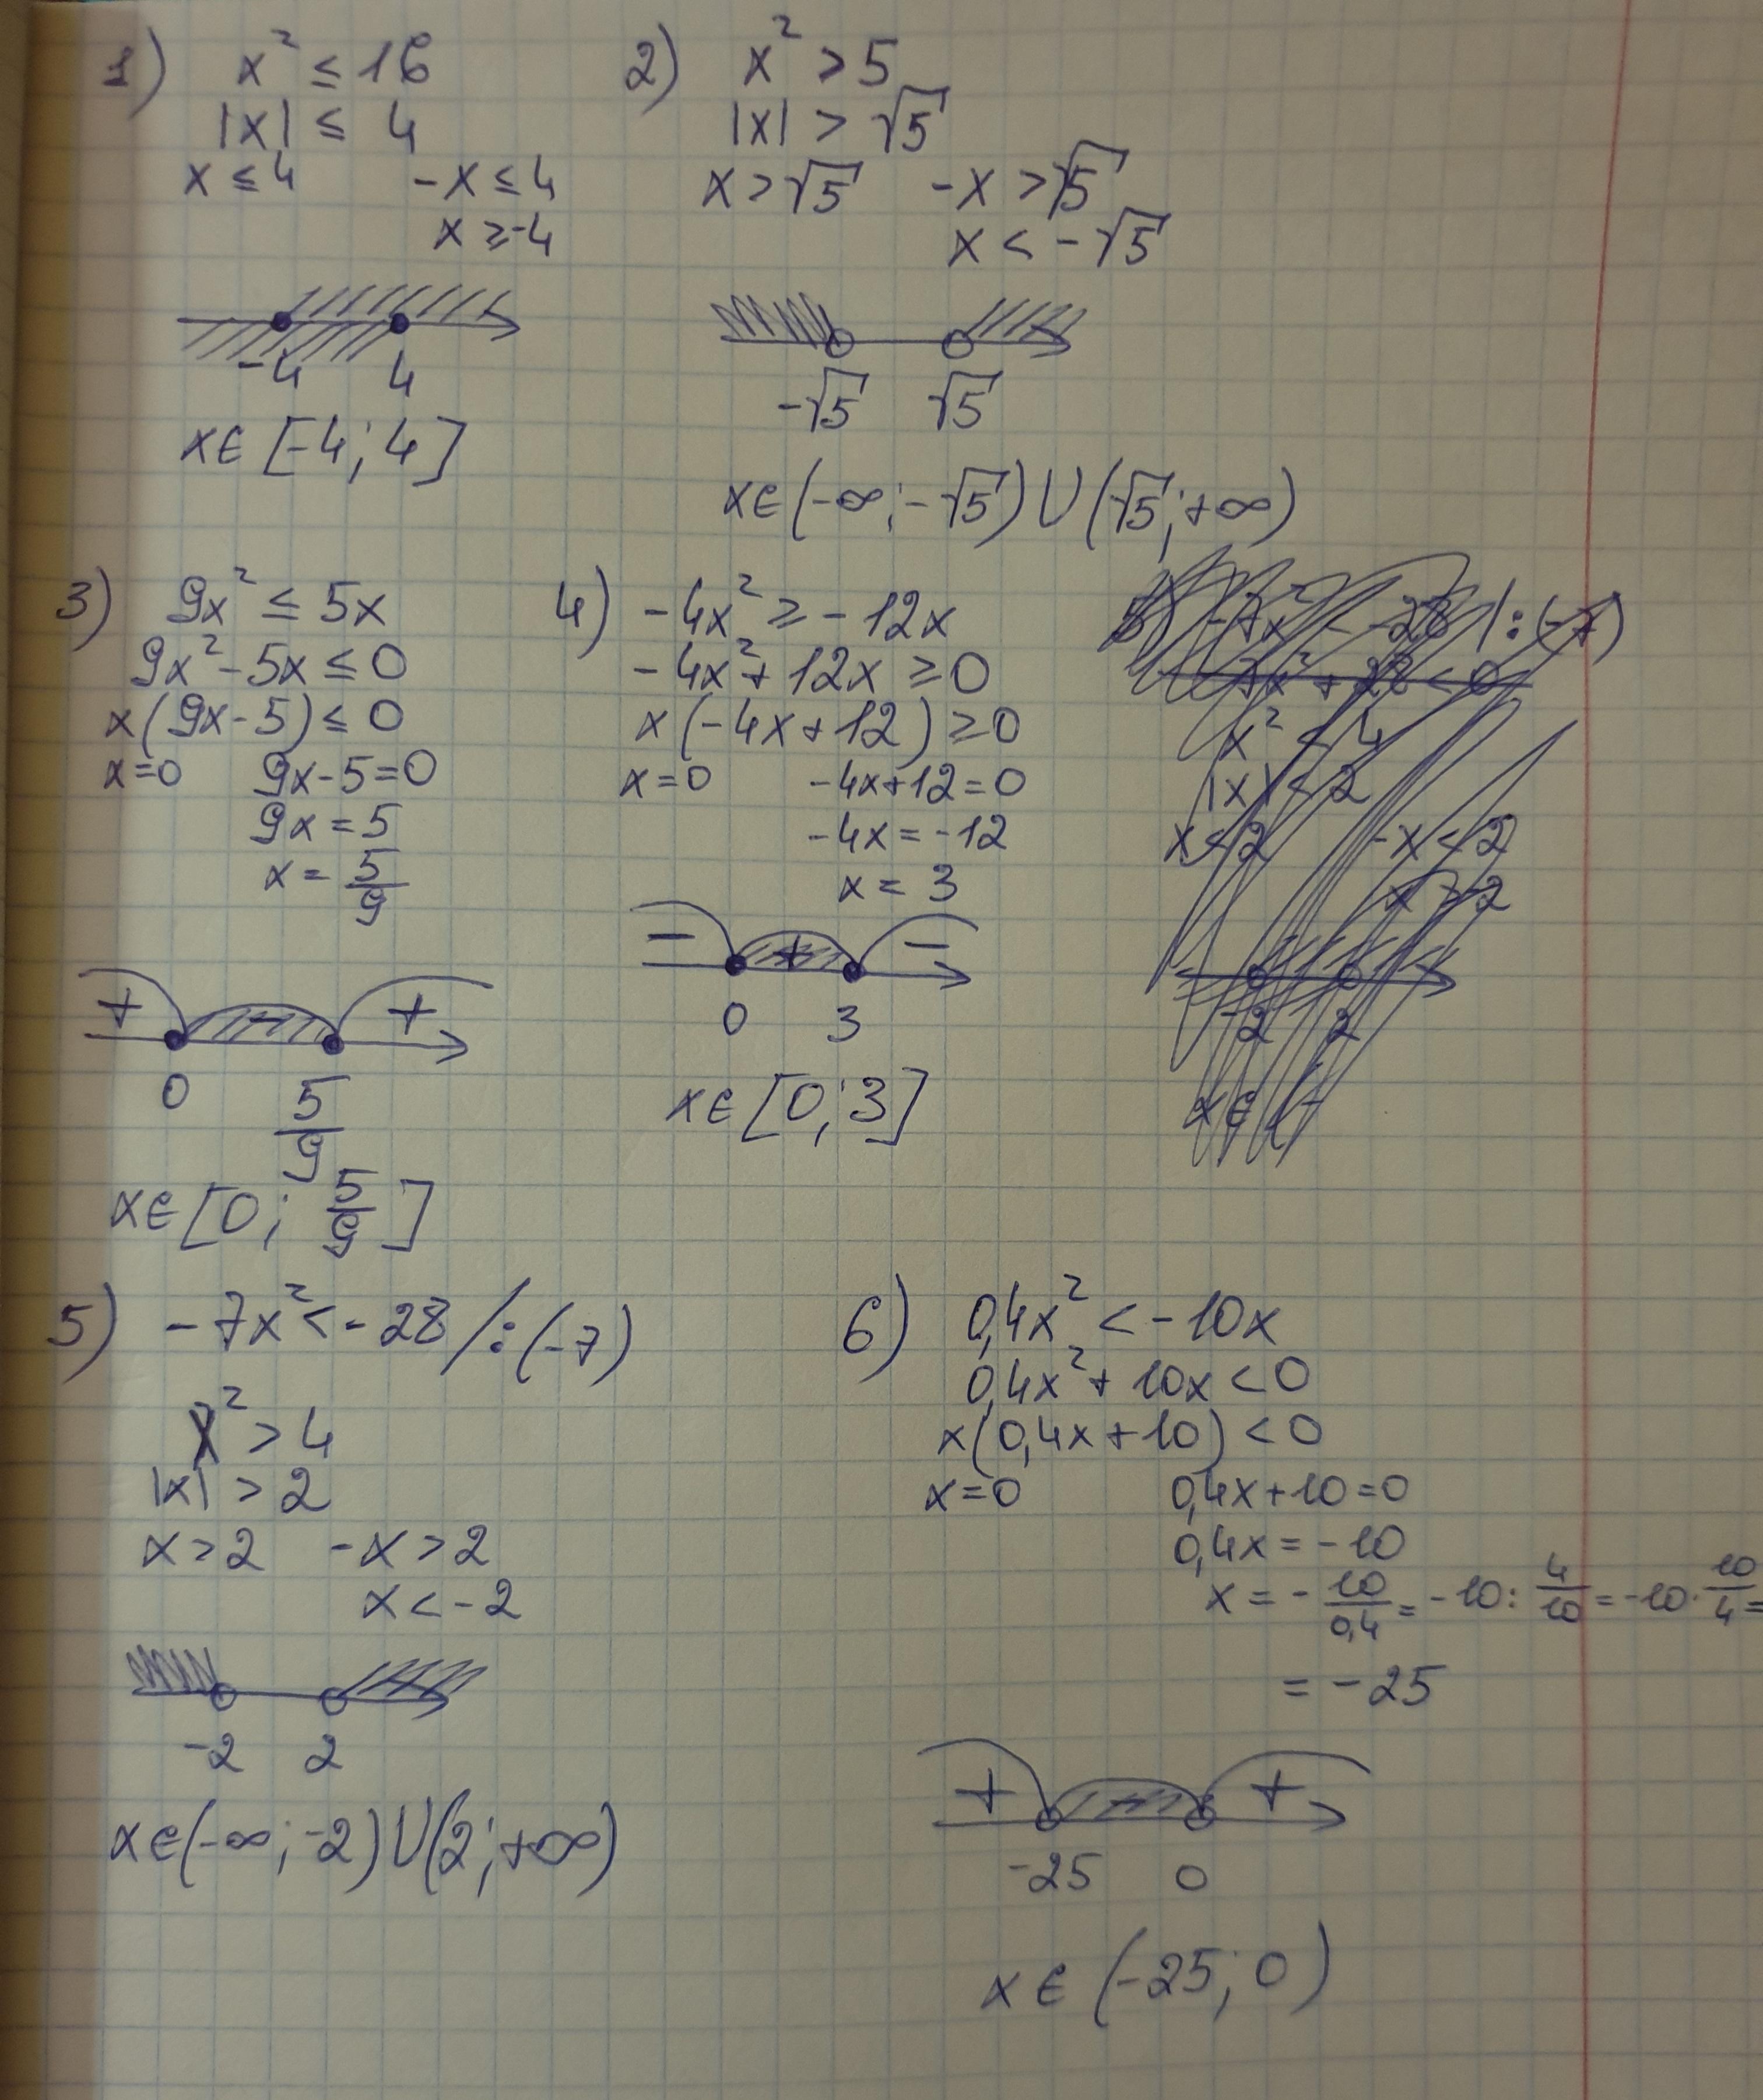 1) x² ≤ 16
|x| ≤ 4
x ≤ 4 -x ≤ 4
x ≥ -4
-4 4
x∈[-4; 4]
2) x² > 5
|x| > √5
x > √5 -x > √5
x < -√5
-√5 √5
x∈(-∞; -√5)∪(√5; +∞)
3) 9x² ≤ 5x
9x² - 5x ≤ 0
x(9x - 5) ≤ 0
x=0 9x-5=0
9x = 5
x = 5/9
+ - +
0 5/9
x∈[0; 5/9]
4) -4x² ≥ -12x
-4x² + 12x ≥ 0
x(-4x+12) ≥ 0
x=0 -4x+12=0
-4x = -12
x = 3
- + -
0 3
x∈[0; 3]
5) -7x² -28 /:(-7)
7x² + 28 < 0
x² < 4
|x| < 2
x < 2 -x < 2
x > -2
-2 2
x∈(-
5) -7x² < -28 /:(-7)
x² > 4
|x| > 2
x > 2 -x > 2
x < -2
-2 2
x∈(-∞; -2)∪(2; +∞)
6) 0,4x² < -10x
0,4x² + 10x < 0
x(0,4x+10) < 0
x=0 0,4x+10=0
0,4x = -10
x = -10/0,4 = -10 : 4/10 = -10 · 10/4 =
= -25
+ - +
-25 0
x∈(-25; 0)